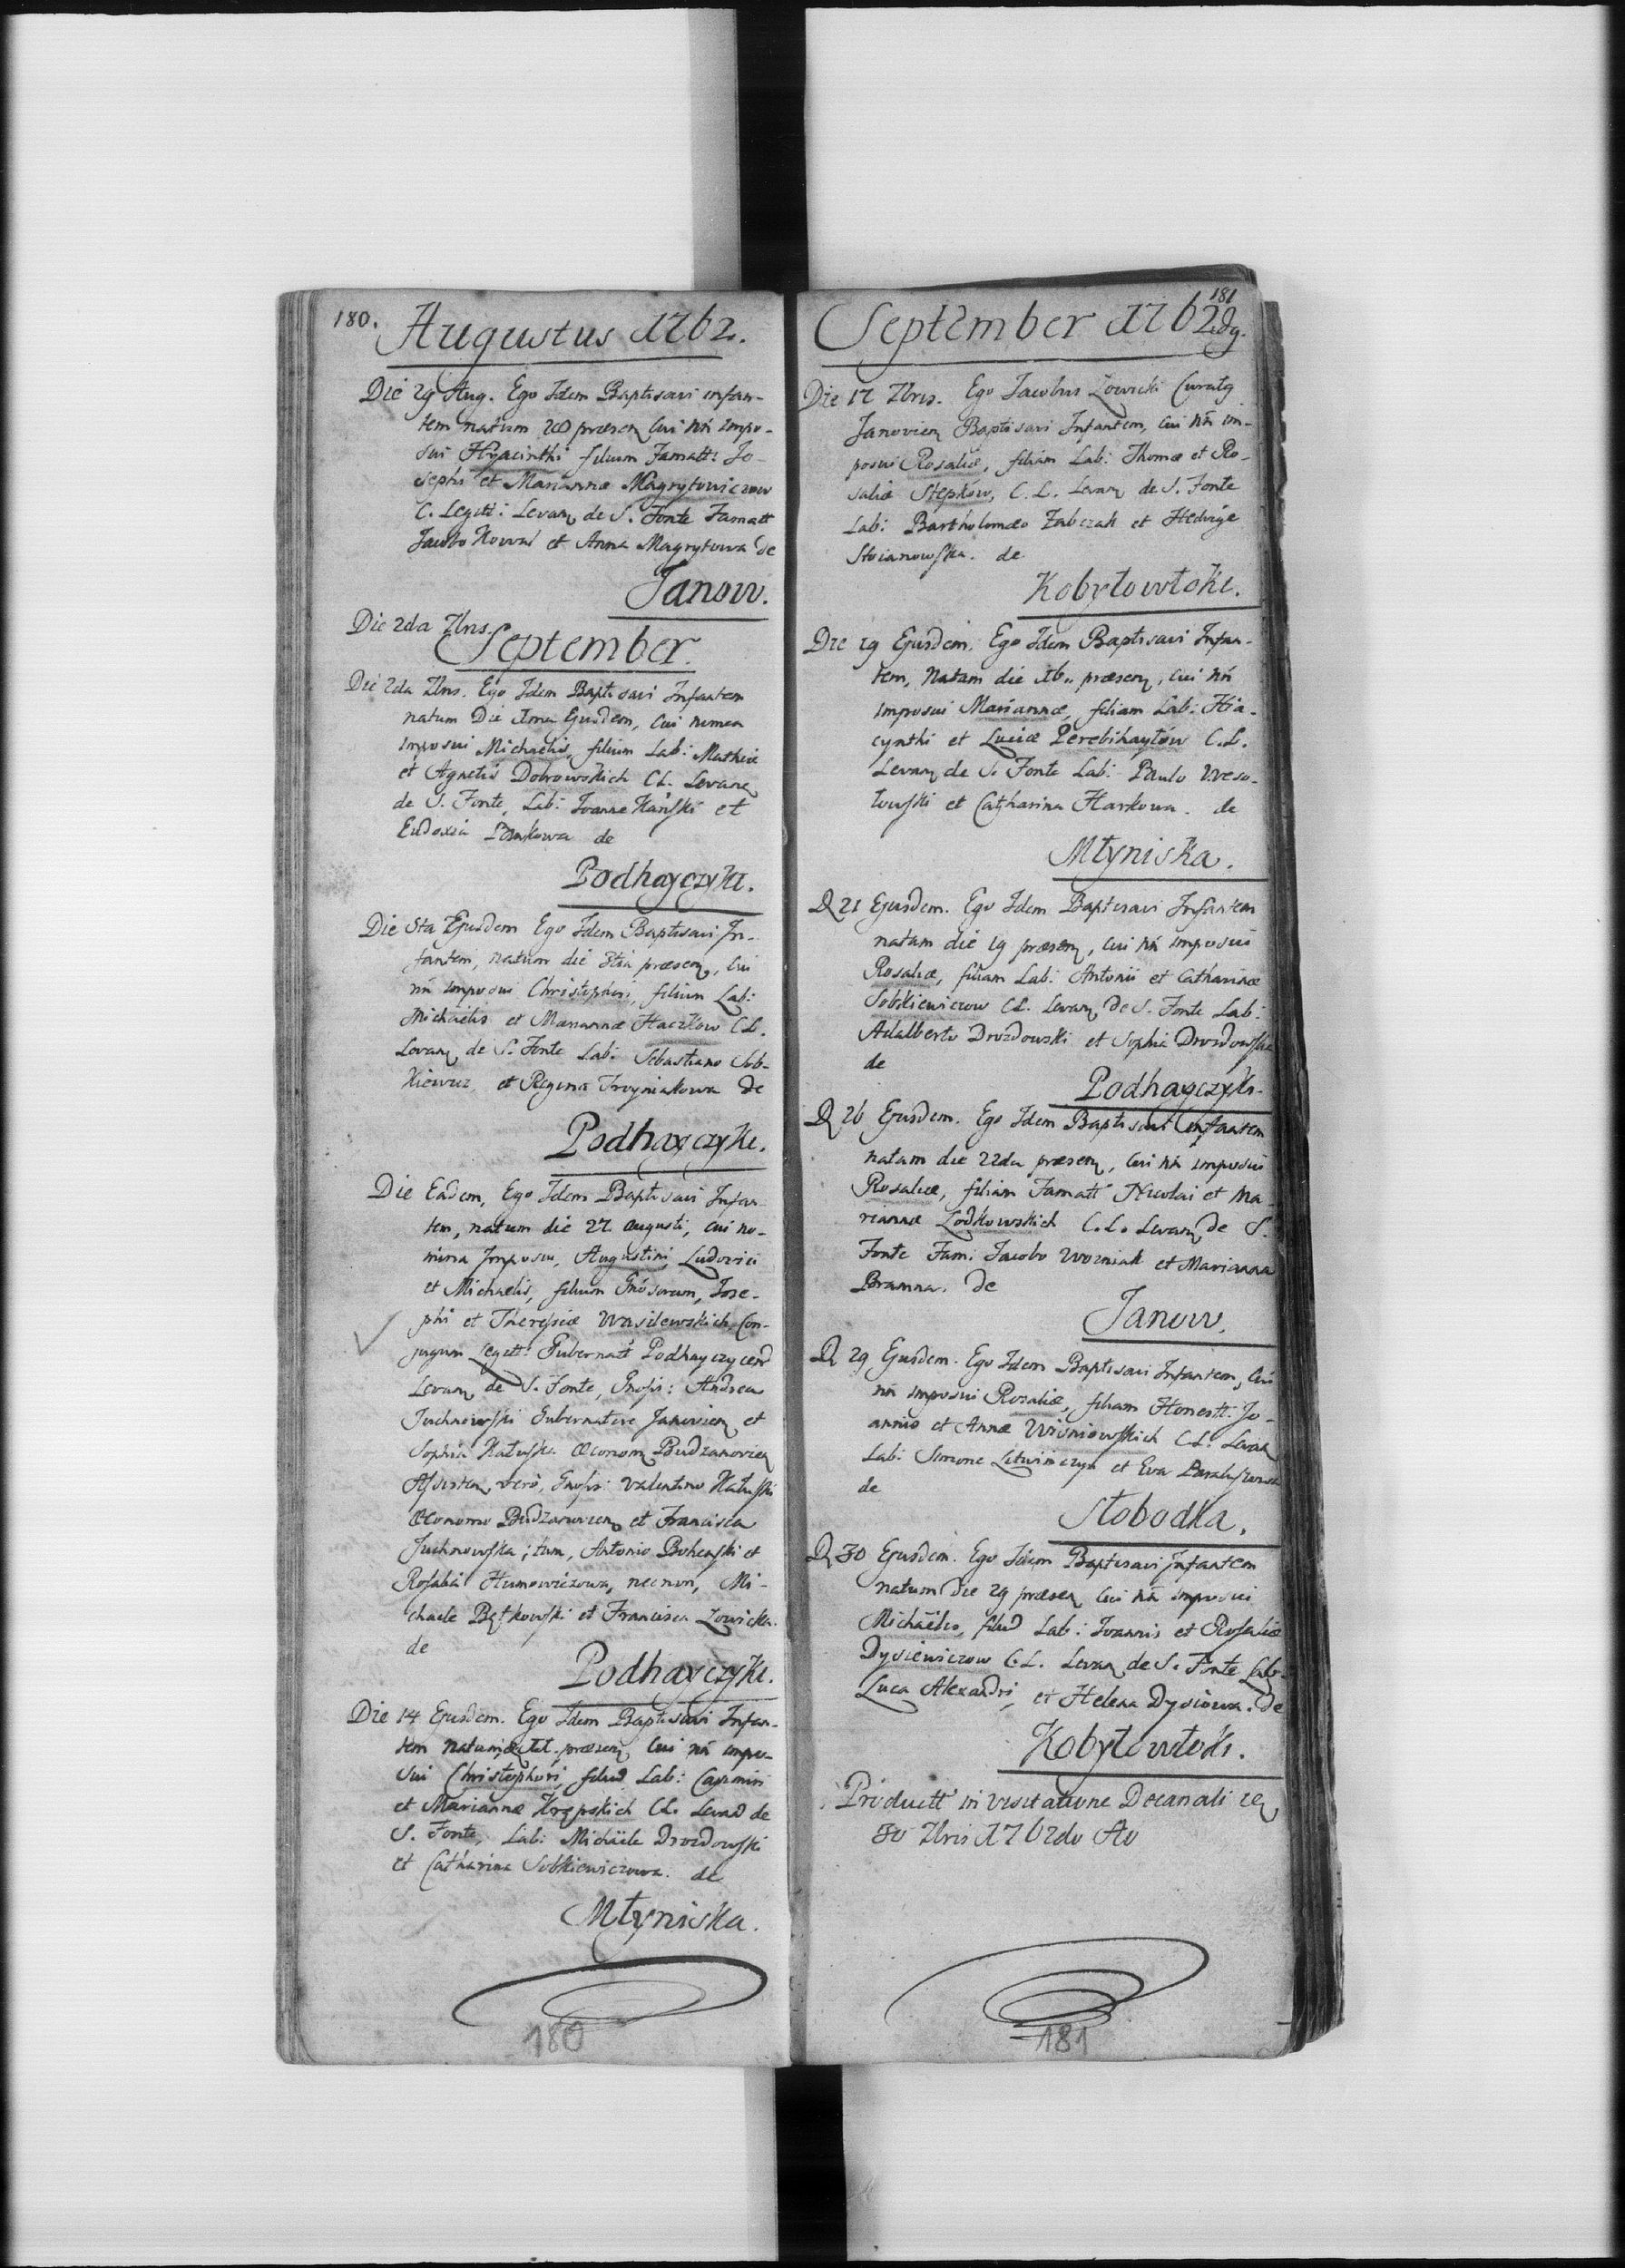 180.
Augustus 1762.
Die 29 Aug. Ego Idem Baptisavi infan-
tem natum præsen cui nn impo-
sui Hyacinthi filium Famatt: Jo-
sephi et Mariannæ Magrytowiczow
C. Legitt: Levan de S. Fonte Famatt
Jacobo Kowal et Anna Magrytowa de
Janow.
Die 2da 7bris.
September.
Die 2da 7bris. Ego Idem Baptisavi Infantem
natum Die 1ma Ejusdem, Cui nomen
imposui Michaelis, filium Lab: Mathiæ
et Agnetis Dobrowskich CL. Levan
de S. Fonte, Lab: Joanne Kański et
Eudoxia de
Podhayczyki.
Die 5ta Ejusdem Ego Idem Baptisavi In-
fantem, natum die præsen, Cui
nn imposui Christophori, filium Lab:
Michaelis et Mariannæ Haczkow CL.
Levan de S. Fonte Lab: Sebastiano Sob-
kiewicz, et Regina Troyniakowa de
Podhayczyki.
Die Eadem, Ego Idem Baptisavi Infan-
tem, natum die 27 Augusti, cui no-
mina Imposui, Augustini, Ludovici
et Michaelis, filium Gnosorum, Jose-
phi et Theresiæ Wasilewskich, Con-
jugum Legitt: Gubernatt Podhayczycen
Levan de S. Fonte, Gnosis: Andrea
Juchnowski Gubernatore Janovien et
Sophia Œconom Budzanovien
Assisten, vero, Gnosis: Valentino
Œconomo Budzanovien et Francisca
Juchnowska; tum, Antonio et
Rosalia Humowiczowa, necnon, Mi-
chaele Bętkowski et Francisca Zowicka.
de
Podhayczyki.
Die 14 Ejusdem. Ego Idem Baptisavi Infan-
tem natum præsen Cui nn impo-
sui Christophori, filium Lab: Casimiri
et Mariannæ Krępskich CL. Levan de
S. Fonte, Lab: Michäele Drozdowski
et Catharina Sobkiewiczowa. de
Młyniska.
180
181
September 1762dg.
Die 17 7bris. Ego Jacobus Zowicki Curatg
Janovien Baptisavi Infantem, Cui nn im-
posui Rosaliæ, filiam Lab: Thomæ et Ro-
saliæ Stepków, C. L. Levan de S. Fonte
Lab: Bartholomæo Zabczak et Hedvige
Stoianowska. de
Kobyłowłoki.
Die 19 Ejusdem. Ego Idem Baptisavi Infan-
tem, natam die 16 præsen, Cui nn
imposui Mariannæ, filiam Lab: Hia-
cynthi et Luciæ Perebihaytów C.L.
Levan de S. Fonte Lab: Paulo Weso-
łowski et Catharina Harkowa. de
Młyniska.
D 21 Ejusdem. Ego Idem Baptisavi Infantem
natam die 19 præsen, Cui nn imposui
Rosaliæ, filiam Lab: Antonii et Catharinæ
Sobkiewiczow CL. Levan de S. Fonte Lab:
Adalberto Drozdowski et Sophia Drozdowska
de
Podhayczyki.
D 26 Ejusdem. Ego Idem Baptisavi Infantem
natam die 22da præsen, Cui nn imposui
Rosaliæ, filiam Famatt Nicolai et Ma-
riannæ Zodkowskich C.L. Levan de S.
Fonte Fam: Jacobo Wozniak et Marianna
Branna. de
Janow.
D 29 Ejusdem. Ego Idem Baptisavi Infantem, Cui
nn imposui Rosaliæ, filiam Honestt: Jo-
annis et Annæ Wisniowskich C.L. Levan
Lab: Simone et Eva
de
Słobodka.
D 30 Ejusdem. Ego Idem Baptisavi Infantem
natum Die 29 præsen Cui nn imposui
Michäelis, filium Lab: Joannis et Rosaliæ
Dysiewiczow C.L. Levan de S. Fonte Lab:
Luca Alexandri, et Helena Dysiowa. de
Kobyłowłoki.
Productt in visitatione Decanali
30 7bris 1762do Ao
181